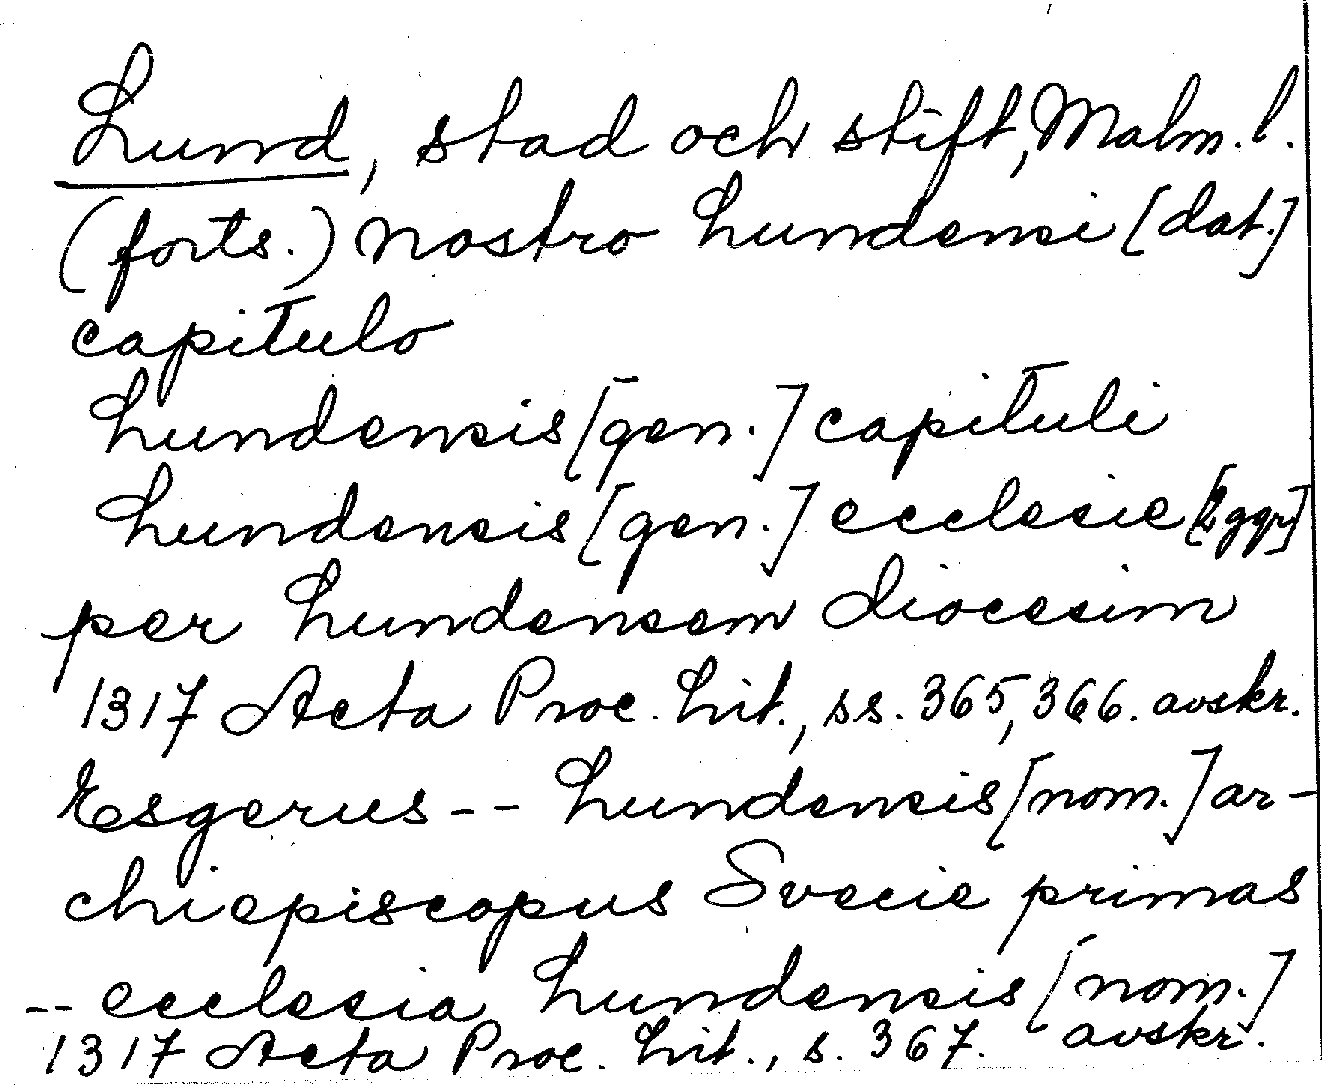 Lund, stad och stift, Malm. l.
(forts.) nostro Lundensi [dat.]
capitulo
Lundensis [gen.] capituli
Lundensis [gen.] ecclesie [2 ggr]
per Lundensem diocesim
1317 Acta Proc. Lit., ss. 365, 366. avskr.
Esgerus -- Lundensis [nom.] ar-
chiepiscopus Svecie primas
-- ecclesia Lundensis [nom.]
1317 Acta Proc. Lit., s. 367. avskr.